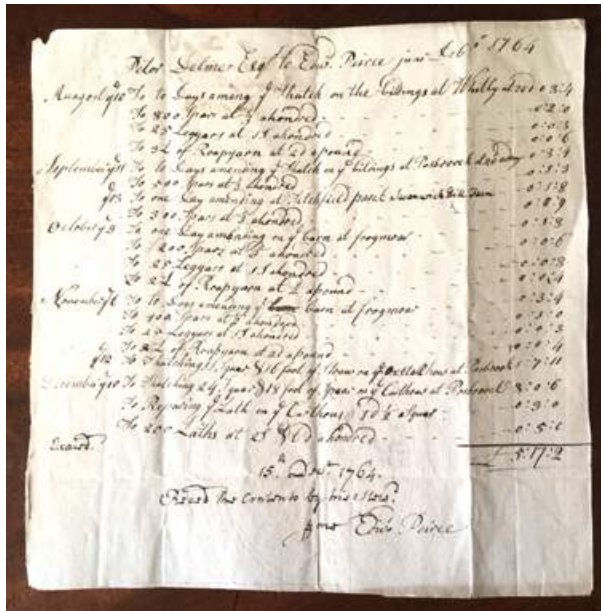 Peter Delmer Esqr to Edwd. Peirce junr 1764
August ye 10 To to Days amening ye thatch on the bildings at Whitly at 20d 0 3:4
To 800 Spars at 3d ahondred 0 2:0
To 25 Leggars at 1s ahondred 0:0:3
To 3L of Roapyarn at 2d apound 0:0:6
September ye 11 To to Days amending ye thatch on ye bildings at Posbroock 0:3:4
To 500 Spars at 3d ahondred
ye 13 To one Day amending at Titchfield 0:1:8
To 300 Spars at 3d ahondred 0:0:9
October ye 3 To one Day amending on ye barn at frogmor 0:1:8
To 200 Spars at 3d ahondred 0:0:6
To 25 Leggars at 1s ahondred 0:0:3
To 2L of Roapyarn at 2d apound 0:0:4
November To to Days amending ye barn at frogmor 0:3:4
To 400 Spars at 3d ahondred 0:1:0
To 20 Leggars at 1s ahondred 0:0:3
To 2L of Roapyarn at 2d apound 0:0:4
ye 12 To thatching 16 foot of Straw on ye at Posbroock 1:7:11
December ye 10 To thatching 24 18 foot of on ye Carthous at Posbroock 3:0:6
To Repairing ye on ye Carthous 0:3:0
To 200 Laths at ahondred 0:5:
Examd. £ 5:17:2
15th Decr. 1764.
Reced the Contents by me
Edwd. Peirce